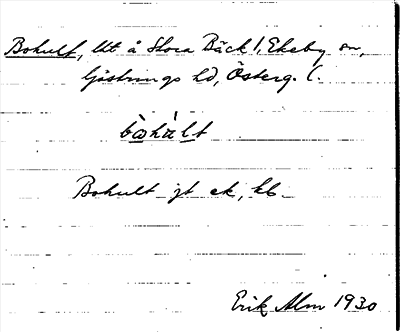 Bokult, lht å Stora Bäck 1, Ekeby sn,
Göstrings hd, Österg. l.
bo̱hu̱lt
Bokult jt ek, kb.
Erik Alm 1930